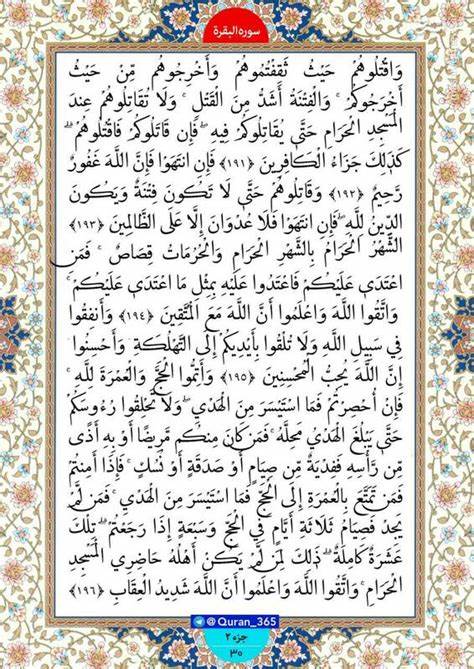 سوره البقرة
وَاقْتُلُوهُمْ حَيْثُ ثَقِفْتُمُوهُمْ وَأَخْرِجُوهُم مِّنْ حَيْثُ
أَخْرَجُوكُمْ ۚ وَالْفِتْنَةُ أَشَدُّ مِنَ الْقَتْلِ ۚ وَلَا تُقَاتِلُوهُمْ عِندَ
الْمَسْجِدِ الْحَرَامِ حَتَّىٰ يُقَاتِلُوكُمْ فِيهِ ۖ فَإِن قَاتَلُوكُمْ فَاقْتُلُوهُمْ ۗ
كَذَٰلِكَ جَزَاءُ الْكَافِرِينَ ﴿١٩١﴾ فَإِنِ انتَهَوْا فَإِنَّ اللَّهَ غَفُورٌ
رَّحِيمٌ ﴿١٩٢﴾ وَقَاتِلُوهُمْ حَتَّىٰ لَا تَكُونَ فِتْنَةٌ وَيَكُونَ
الدِّينُ لِلَّهِ ۖ فَإِنِ انتَهَوْا فَلَا عُدْوَانَ إِلَّا عَلَى الظَّالِمِينَ ﴿١٩٣﴾
الشَّهْرُ الْحَرَامُ بِالشَّهْرِ الْحَرَامِ وَالْحُرُمَاتُ قِصَاصٌ ۚ فَمَنِ
اعْتَدَىٰ عَلَيْكُمْ فَاعْتَدُوا عَلَيْهِ بِمِثْلِ مَا اعْتَدَىٰ عَلَيْكُمْ ۚ
وَاتَّقُوا اللَّهَ وَاعْلَمُوا أَنَّ اللَّهَ مَعَ الْمُتَّقِينَ ﴿١٩٤﴾ وَأَنفِقُوا
فِي سَبِيلِ اللَّهِ وَلَا تُلْقُوا بِأَيْدِيكُمْ إِلَى التَّهْلُكَةِ ۛ وَأَحْسِنُوا ۛ
إِنَّ اللَّهَ يُحِبُّ الْمُحْسِنِينَ ﴿١٩٥﴾ وَأَتِمُّوا الْحَجَّ وَالْعُمْرَةَ لِلَّهِ ۚ
فَإِنْ أُحْصِرْتُمْ فَمَا اسْتَيْسَرَ مِنَ الْهَدْيِ ۖ وَلَا تَحْلِقُوا رُءُوسَكُمْ
حَتَّىٰ يَبْلُغَ الْهَدْيُ مَحِلَّهُ ۚ فَمَن كَانَ مِنكُم مَّرِيضًا أَوْ بِهِ أَذًى
مِّن رَّأْسِهِ فَفِدْيَةٌ مِّن صِيَامٍ أَوْ صَدَقَةٍ أَوْ نُسُكٍ ۚ فَإِذَا أَمِنتُمْ
فَمَن تَمَتَّعَ بِالْعُمْرَةِ إِلَى الْحَجِّ فَمَا اسْتَيْسَرَ مِنَ الْهَدْيِ ۚ فَمَن لَّمْ
يَجِدْ فَصِيَامُ ثَلَاثَةِ أَيَّامٍ فِي الْحَجِّ وَسَبْعَةٍ إِذَا رَجَعْتُمْ ۗ تِلْكَ
عَشَرَةٌ كَامِلَةٌ ۗ ذَٰلِكَ لِمَن لَّمْ يَكُنْ أَهْلُهُ حَاضِرِي الْمَسْجِدِ
الْحَرَامِ ۚ وَاتَّقُوا اللَّهَ وَاعْلَمُوا أَنَّ اللَّهَ شَدِيدُ الْعِقَابِ ﴿١٩٦﴾
@Quran_365
جزء ٢
٣٠